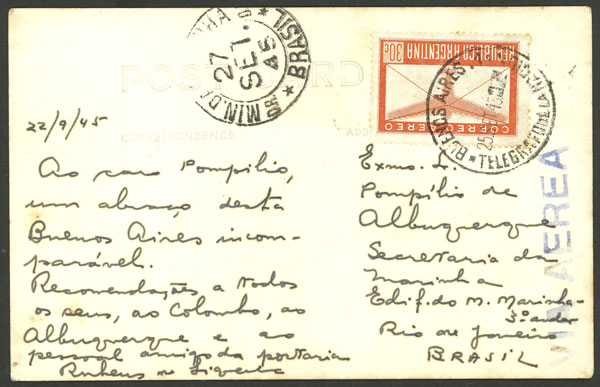 POST CARD
CORRESPONDENCE
MIN. DA
27
SET.
45
BRASIL
REPUBLICA ARGENTINA
30c
CORREO AEREO
BUENOS AIRES
TELEGRAFO DE LA NACION
VIA AEREA
22/9/45
Ao caro Pompilio,
um abraço desta
Buenos Aires incom-
parável.
Recomendações a todos
os seus, ao Colombo, ao
Albuquerque e ao
pessoal amigo da portaria
Rubens
Exmo. Sr.
Pompílio de
Albuquerque
Secretaria da
Marinha
Edif. do M. Marinha-
3º andar
Rio de Janeiro
BRASIL